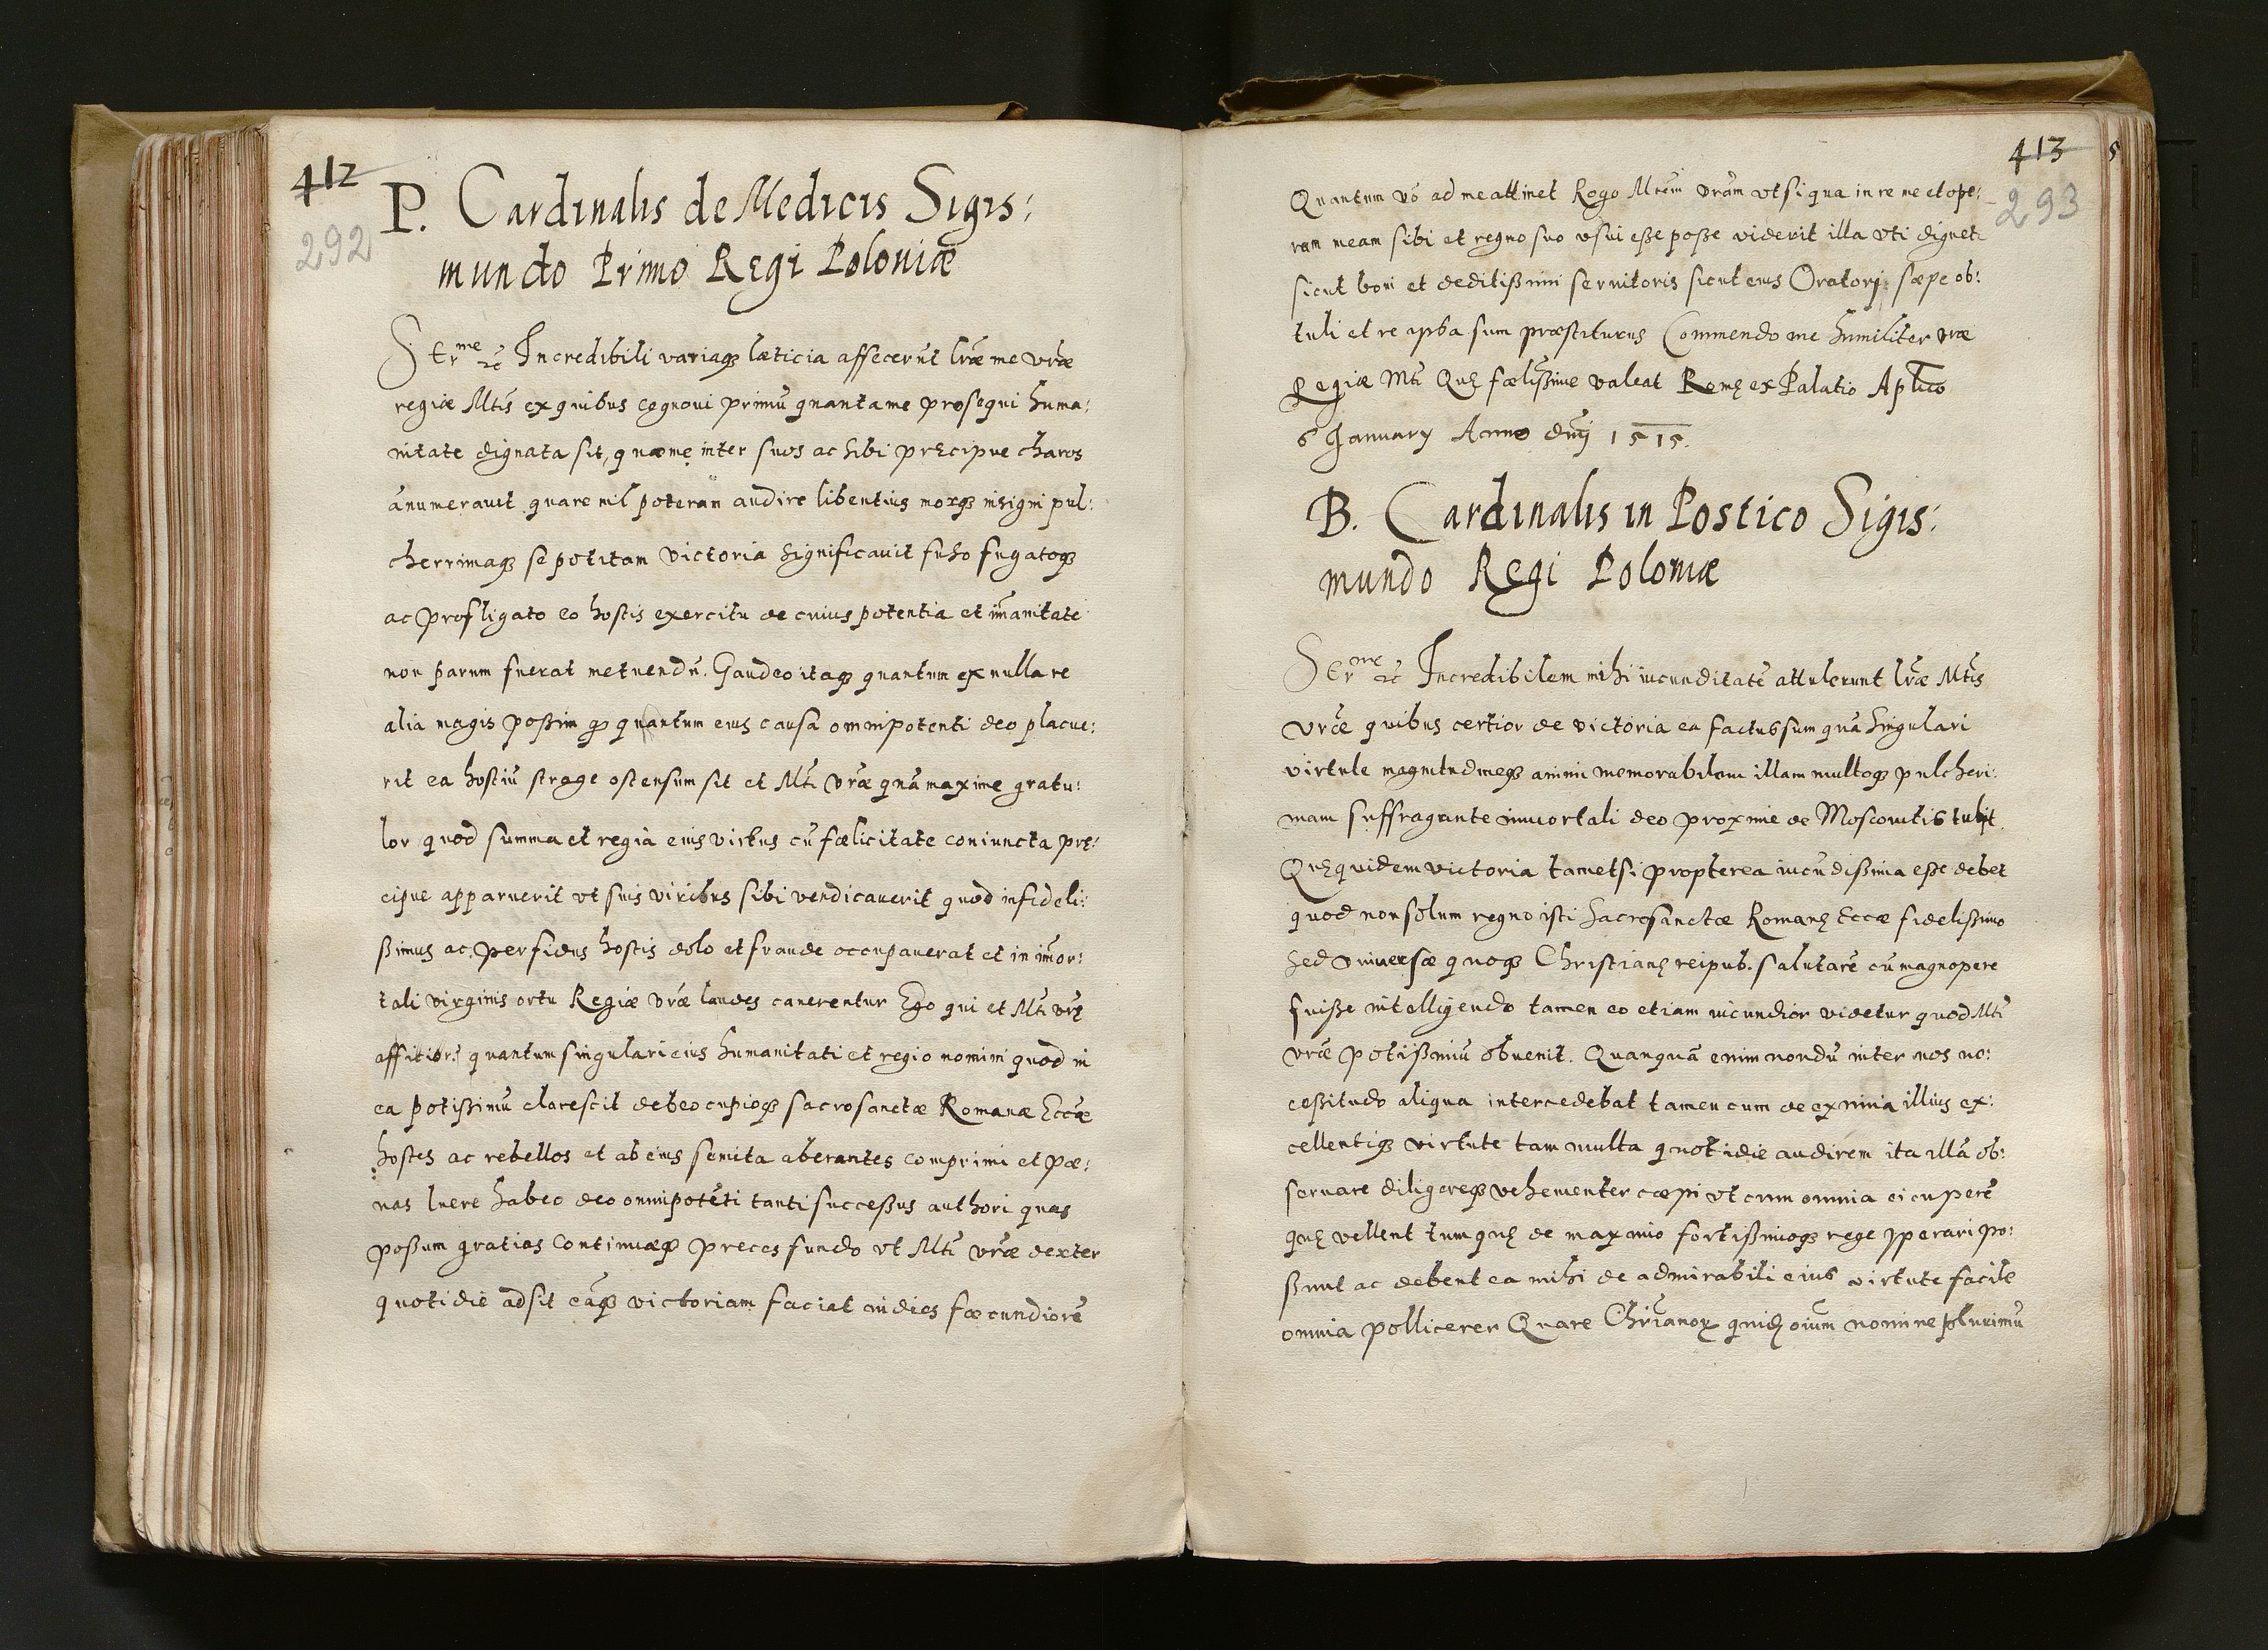 412
292
P. Cardinalis de Medicis Sigis:
mundo Primo Regi Poloniæ
Ser^me etc Incredibili variaq3 læticia affecerūt lr̃æ me vr̃æ
regiæ Mtis ex quibus cognoui primū quanta me prosequi huma:
nitate dignata sit, quæ me inter suos ac sibi pręcipue charos
ānumerauit quare nil poteram audire libentius moxq3 insigni pul:
cherrimaq3 se potitam victoria significauit fuso fugatoq3
ac profligato eo hostis exercitu de cuius potentia et im̄anitate
non parum fuerat metuendū. Gaudeo itaq3 quantum ex nulla re
alia magis possim quantum eius causa omnipotenti deo placue:
rit ea hostiū strage ostensum sit et Mti vr̃æ quā maxime gratu:
lor quod summa et regia eius virtus cū fœlicitate coniuncta prę:
cipue apparuerit vt suis viribus sibi vendicauerit quod infideli:
ßimus ac perfidus hostis dolo et fraude occupauerat et in im̄or:
tali virginis ortu Regiæ vr̃æ laudes canerentur Ego qui et Mti vr̃ę
quantum singulari eius humanitati et regio nomini quod in
ea potißimū clarescit debeo cupioq3 sacrosanctæ Romanæ Eccæ
hostes ac rebellos et ab eius semita aberantes comprimi et pœ:
nas luere habeo deo omnipotēti tanti succeßus authori quas
poßum gratias continuasq3 preces fundo vt Mti vr̃æ dexter
quotidie adsit eāq3 victoriam faciat indies fœcundiorē
413
293
Quantum vō ad me attinet Rogo Mtem vr̃am vt si qua in re me et ope:
ram meam sibi et regno suo vsui eße poße viderit illa vti dignet
sicut boni et deditißimi seruitoris sicut eius Oratori sæpe ob:
tuli et re ipsa sum præstiturus Commendo me humiliter vræ
Regiæ Mti Quę fœlißime valeat Romę ex Palatio Aplico
6 January Anno dn̄j 1515.
B. Cardinalis in Postico Sigis:
mundo Regi Poloniæ
Ser^me etc Incredibilem mihi iucunditatē attulerunt lr̃æ Mtis
vr̃æ quibus certior de victoria ea factus sum quā singulari
virtute magnitudineq3 animi memorabilem illam multoq3 pulcheri:
mam suffragante immortali deo proxime de Moscouitis tulit.
Quę quidem victoria tametsi propterea iucūdißima eße debet
quod non solum regno isti sacrosanctæ Romanę Eccæ fidelißimo
sed vniuersæ quoq3 Christianę reipub. salutarē eū magnopere
fuiße intelligendo tamen eo etiam iucundior videtur quod Mti
vr̃æ potißimū obuenit. Quanquā enim nondū inter nos ne:
ceßitudo aliqua intercedebat tamen cum de eximia illius ex:
cellentiq3 virtute tam multa quotidie audirem ita illā ob:
seruare diligereq3 vehementer cœpi vt cum omnia ei cuperē
quę vellent tum quę de maximo fortißimoq3 rege sperari po:
ßunt ac debent ea mihi de admirabili eius virtute facile
omnia pollicerer Quare Chr̃ianoꝝ quidē oīum nomine plurimū